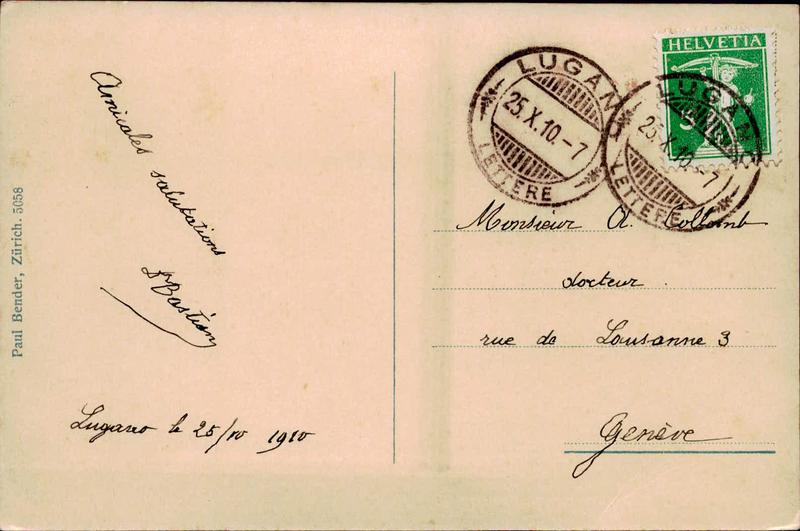 Amicales salutations
Dr Bastian
Lugano le 25/10 1910
Paul Bender, Zürich. 5058
HELVETIA
5
LUGANO
25.X.10.-7
LETTERE
LUGANO
25.X.10.-7
LETTERE
Monsieur A. Collomb
docteur
rue de Lausanne 3
Genève